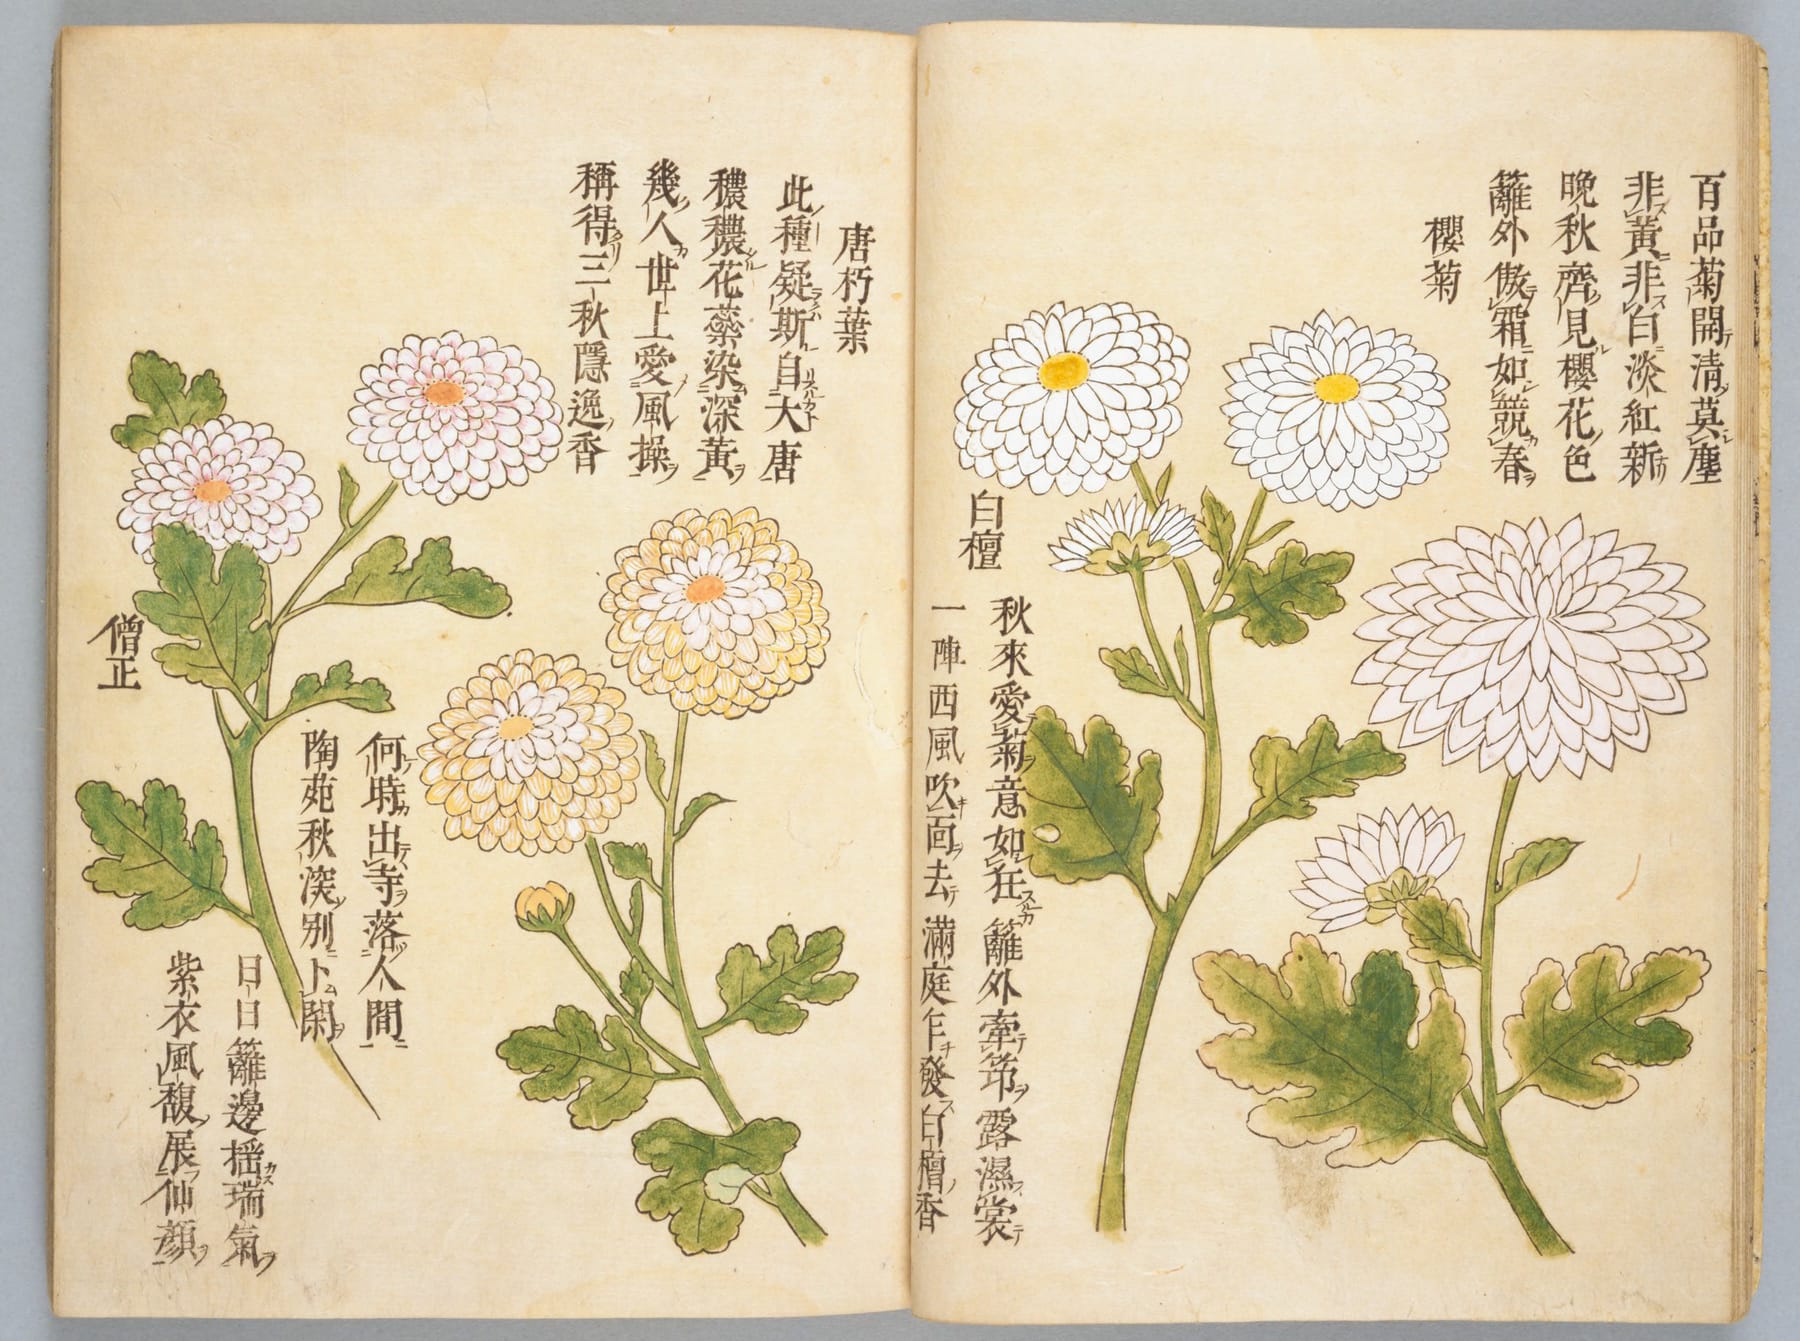 百品菊開清莫塵
非黄非白淡紅新
晩秋齊見櫻花色
籬外傲霜如競春
櫻菊
白檀
秋來愛菊意如狂 籬外牽筇露濕裳
一陣西風吹面去 滿庭乍發白檀香
唐朽葉
此種疑斯自大唐
穠穠花蘂染深黄
幾人世上愛風操
稱得三秋隱逸香
僧正
何時出寺落人間
陶苑秋深別卜閑
日日籬邊揺瑞氣
紫衣風馥展仙顔